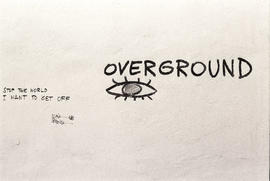 OVERGROUND
STOP THE WORLD
I WANT TO GET OFF